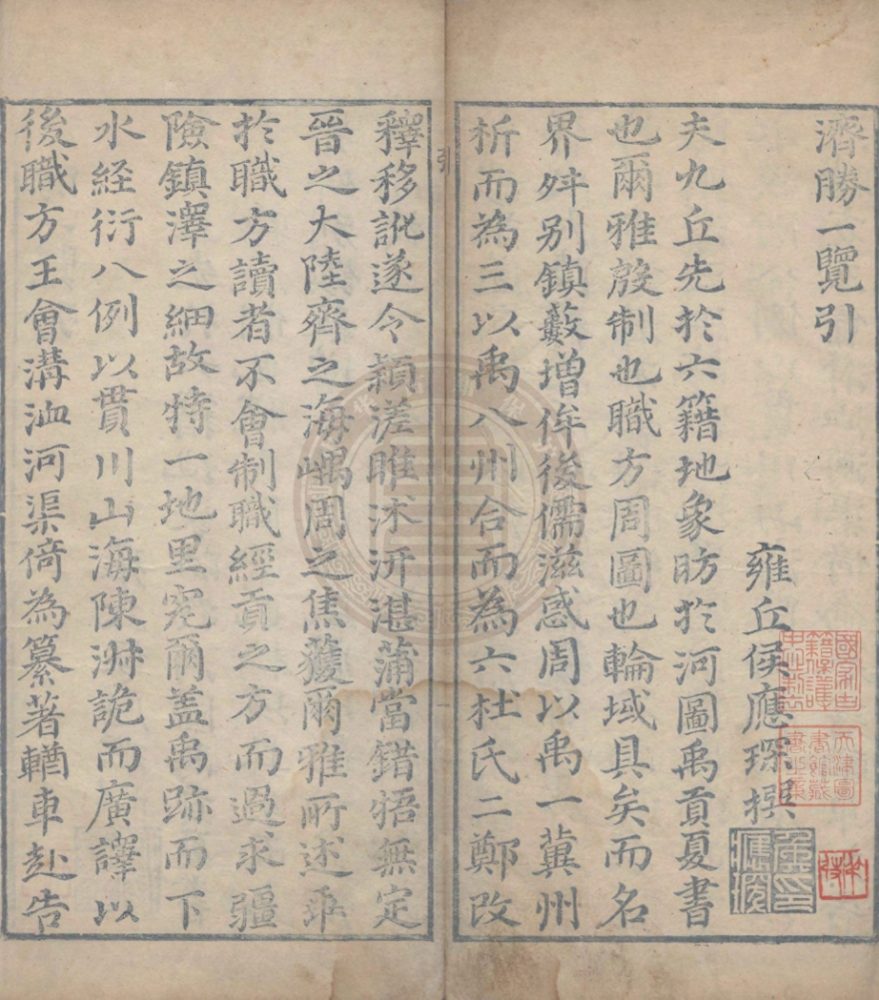 濟勝一覽引
雍丘侯應琛撰
夫九丘先於六籍地象昉於河圖禹貢夏書
也爾雅殷制也職方周圖也輪域具矣而名
界舛别鎮藪增侔後儒滋惑周以禹一冀州
析而為三以禹八州合而為六杜氏二鄭改
釋移訛遂令潁溠睢沭沂湛蒲當錯牾無定
晉之大陸齊之海嵎周之焦穫爾雅所述乖
於職方讀者不會制職經貢之方而過求疆
險鎮澤之細故特一地里寃爾盖禹跡而下
水經衍八例以貫川山海陳洲詭而廣譯以
後職方王會溝洫河渠倚為纂著輶車赴告
引
國家古籍保護
天津圖書館藏書之集